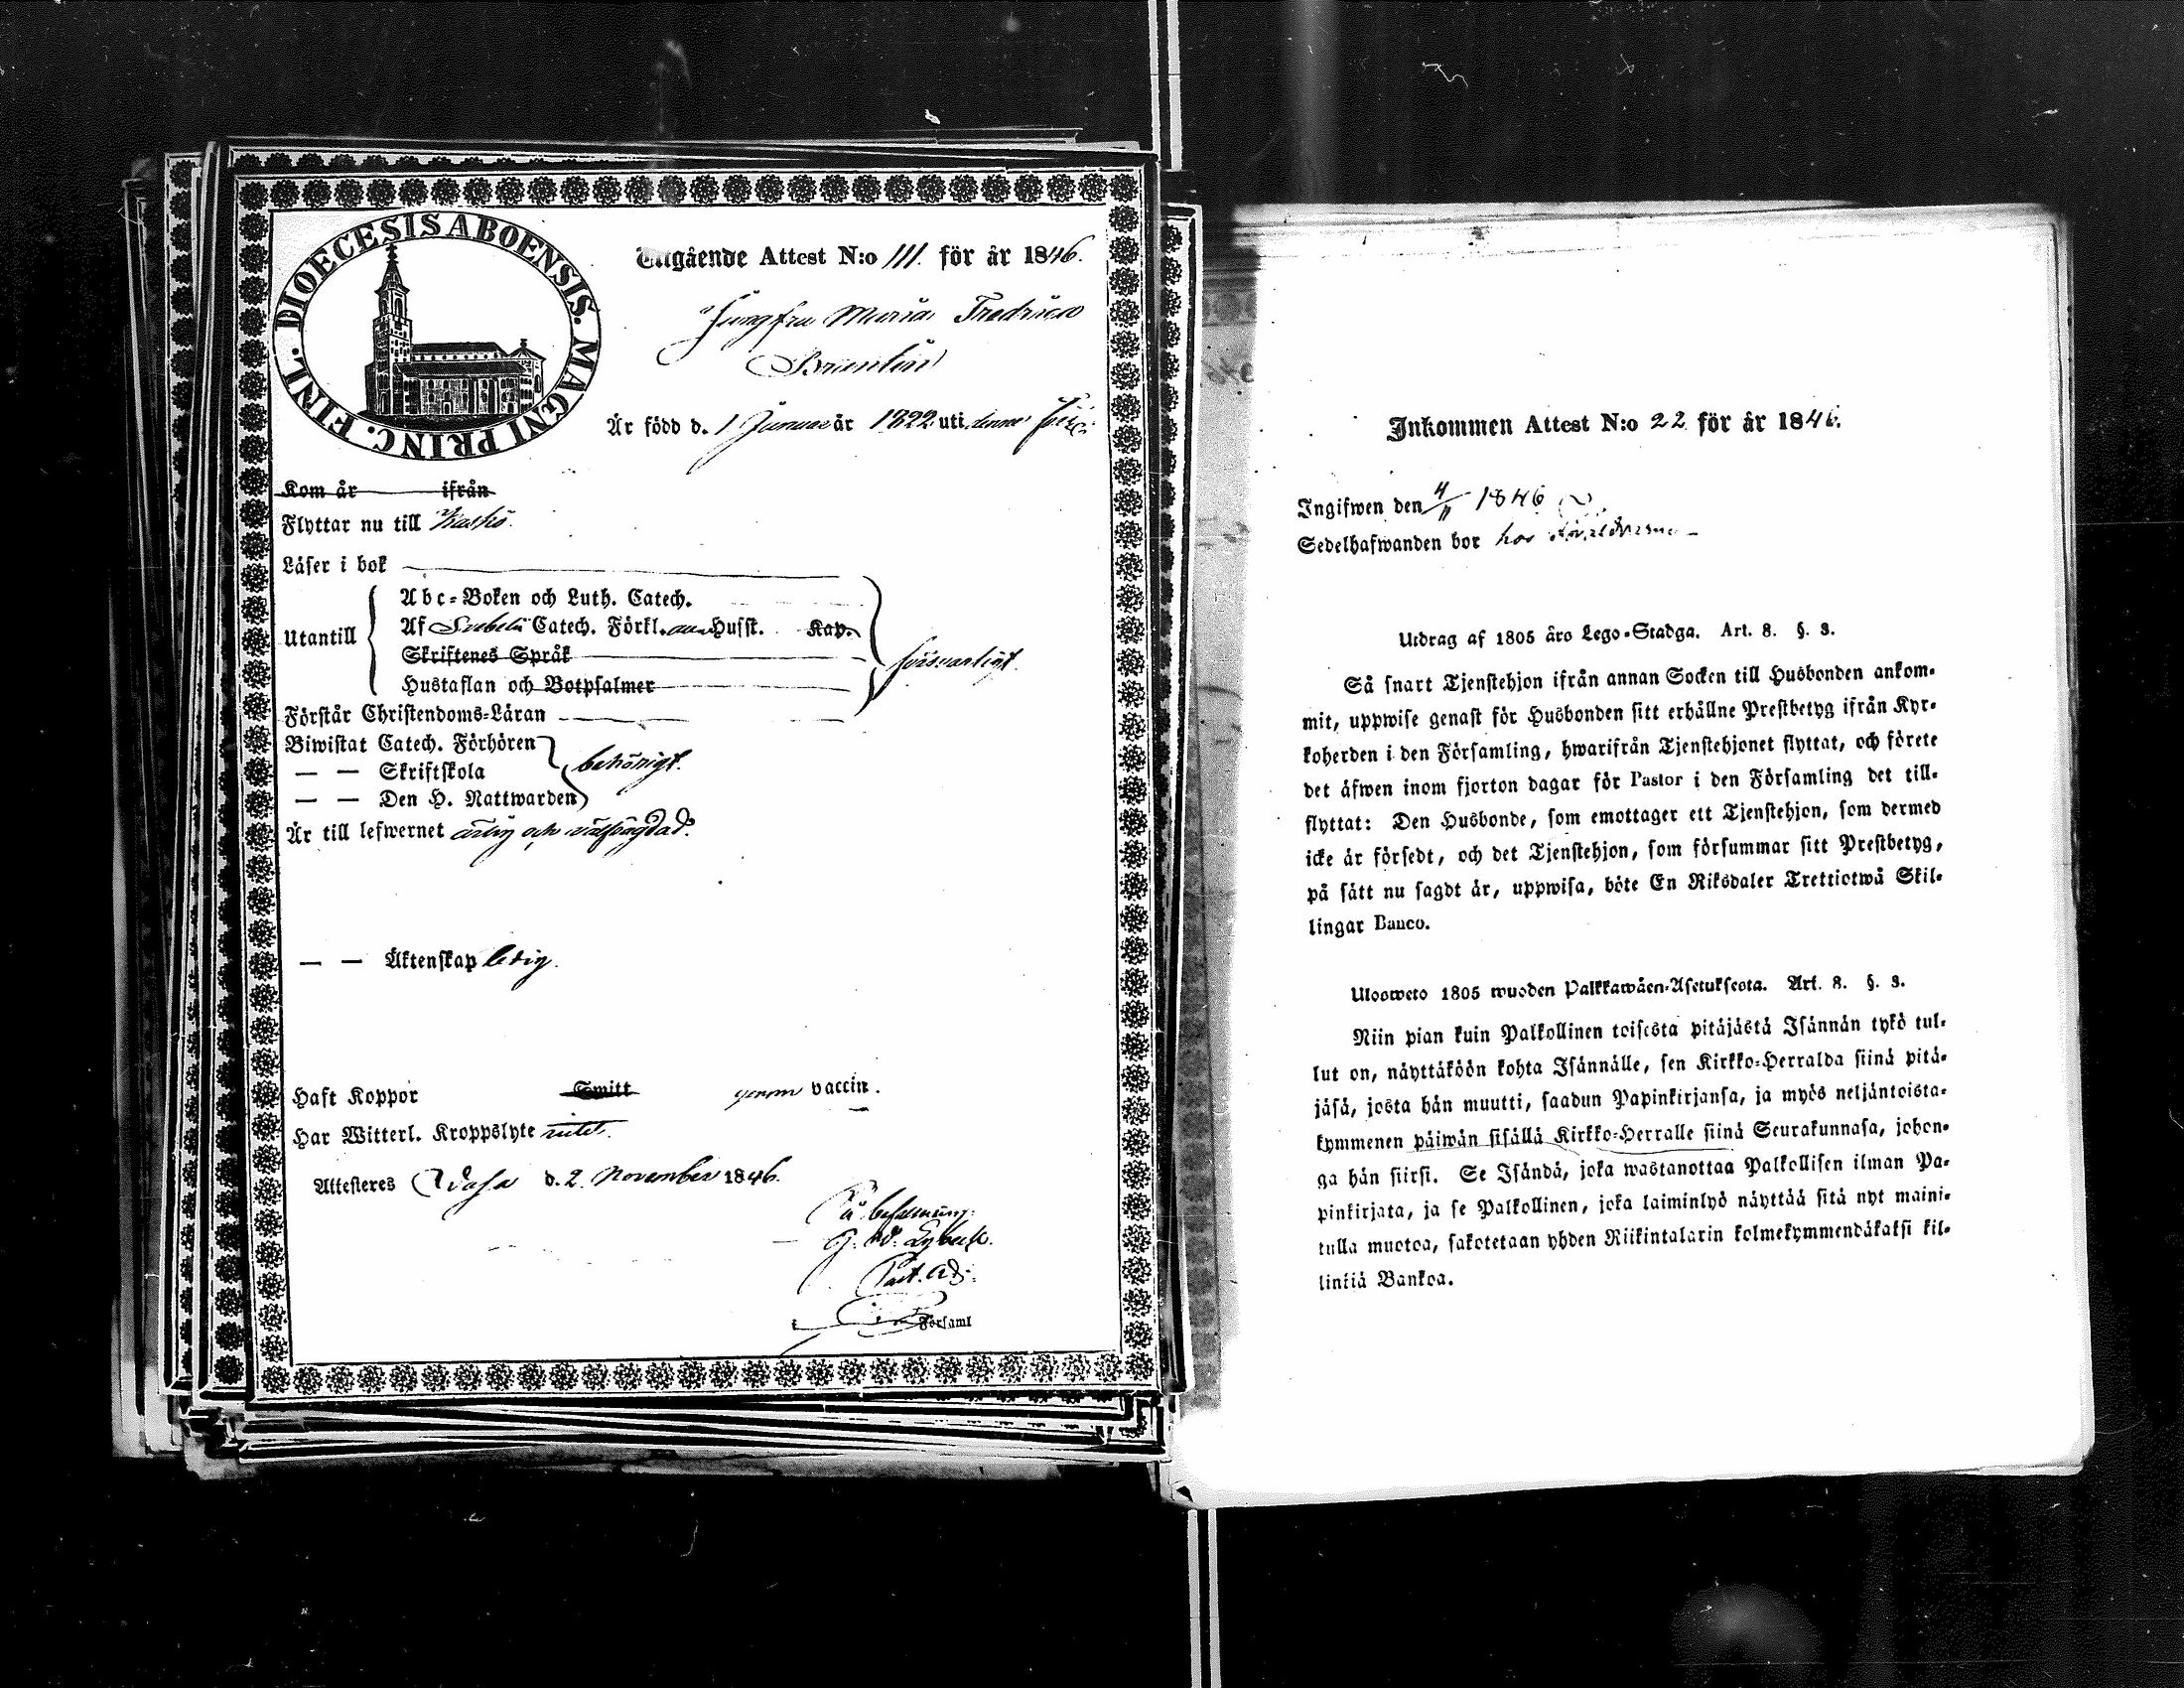 DIOECESIS ABOENSIS. MAGNI PRINC. FINL.
Utgående Attest N:o 111. för år 1846.
Jungfru Maria Fredrica
Är född d. 1 Januari år 1822 uti denna
Kom år ifrån
Flyttar nu till Kaskö.
Läser i bok
Utantill
Abc=Boken och Luth. Catech.
Af Svebelii Catech. Förkl. Husst. Kap.
Skriftenes Språk
Hustaflan och Botpsalmer
försvarligt.
Förstår Christendoms=Läran
Biwistat Catech. Förhören
— — Skriftskola
— — Den H. Nattwarden
behörigt.
Är till lefwernet ärlig och välfrägdad.
— — Äktenskap ledig.
Haft Koppor Smitt genom vaccin.
Har Witterl. Kroppslyte intet.
Attesteres Wasa d. 2. November 1846.
På befallning:
G. W. Lybeck.
Past. Adj.
Församl
Inkommen Attest N:o 22 för år 1846.
Ingifwen den 4/11 1846
Sedelhafwanden bor hos föräldrarne
Utdrag af 1805 års Lego=Stadga. Art. 8. §. 3.
Så snart Tjenstehjon ifrån annan Socken till Husbonden ankom-
mit, uppwise genast för Husbonden sitt erhållne Prestbetyg ifrån Kyr-
koherden i den Församling, hwarifrån Tjenstehjonet flyttat, och förete
det äfwen inom fjorton dagar för Pastor i den Församling det till-
flyttat: Den Husbonde, som emottager ett Tjenstehjon, som dermed
icke är försedt, och det Tjenstehjon, som försummar sitt Prestbetyg,
på sätt nu sagdt är, uppwisa, böte En Riksdaler Trettiotwå Skil-
lingar Banco.
Ulosweto 1805 wuoden Palkkawäen=Asetuksesta. Art. 8. §. 3.
Niin pian kuin Palkollinen toisesta pitäjästä Isännän tykö tul-
lut on, näyttäköön kohta Isännälle, sen Kirkko=Herralda siinä pitä-
jäsä, josta hän muutti, saadun Papinkirjansa, ja myös neljäntoista-
kymmenen päiwän sisällä Kirkko=Herralle siinä Seurakunnasa, johon-
ga hän siirsi. Se Isändä, joka wastanottaa Palkollisen ilman Pa-
pinkirjata, ja se Palkollinen, joka laiminlyö näyttää sitä nyt maini-
tulla muotoa, sakotetaan yhden Riikintalarin kolmekymmendäkaksi kil-
linkiä Bankoa.